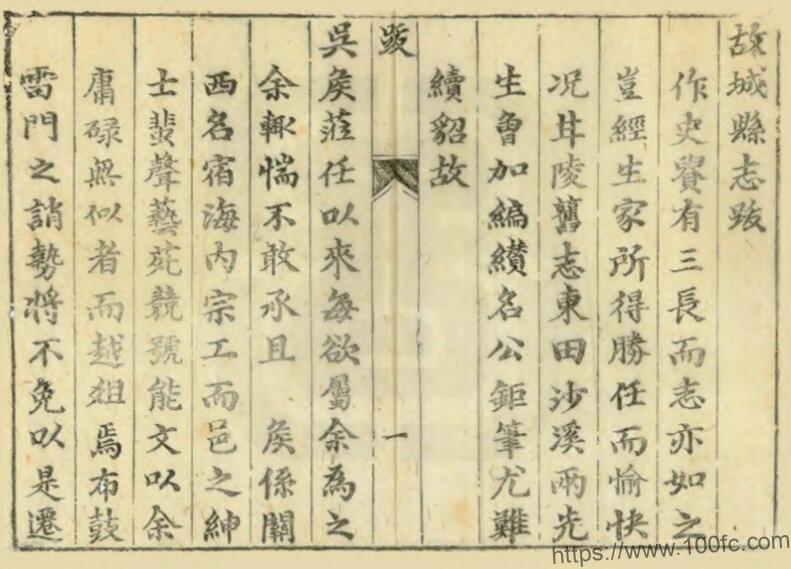 故城縣志跋
作史賛有三長而志亦如之
豈經生家所得勝任而愉快
况甘陵舊志東田沙溪兩先
生曾加編纘名公鉅筆尤難
續貂故
跋
一
吳矦蒞任以來每欲屬余為之
余輙惴不敢承且 矦係關
西名宿海內宗工而邑之紳
士蜚聲藝苑競號能文以余
庸碌無似者而越俎焉布鼓
雷門之誚勢將不免以是遷
https://www.100fc.com